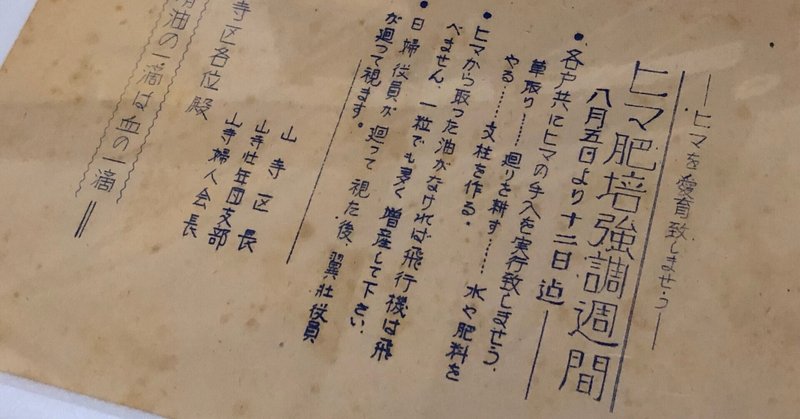 ―ヒマを愛育致しませう―
ヒマ肥培強調週間
八月五日より十二日迠
●各戸共にヒマの手入を実行致しませう、
草取り……廻りを耕す……水や肥料を
やる……支柱を作る。
●ヒマから取った油がなければ飛行機は飛
べません、一粒でも多く増産して下さい、
●日婦役員が廻って視た後、翼壮役員
が廻って視ます。
山寺区長
山寺壮年団支部
山寺婦人会長
寺区各位殿
油の一滴は血の一滴